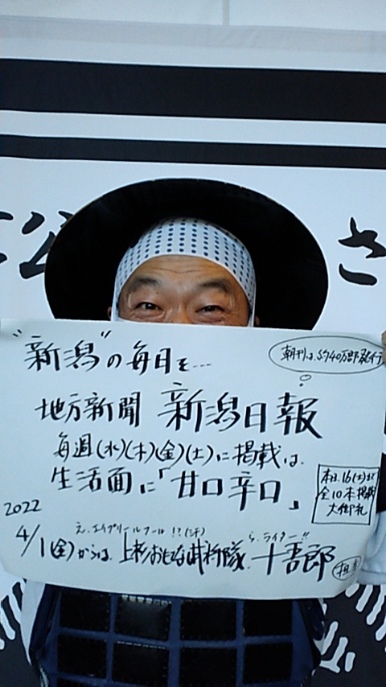 "新潟"の毎日を…
地方新聞 新潟日報
毎週(水)(木)(金)(土)に掲載は、
生活面に「甘口辛口」
本日、16(土)まで
全10本掲載
大御礼
2022
4/1(金)からは、上杉おもてなし武将隊、十吾郎
え、エイプリールフール!!(汗)
ら、ライター!!
さ